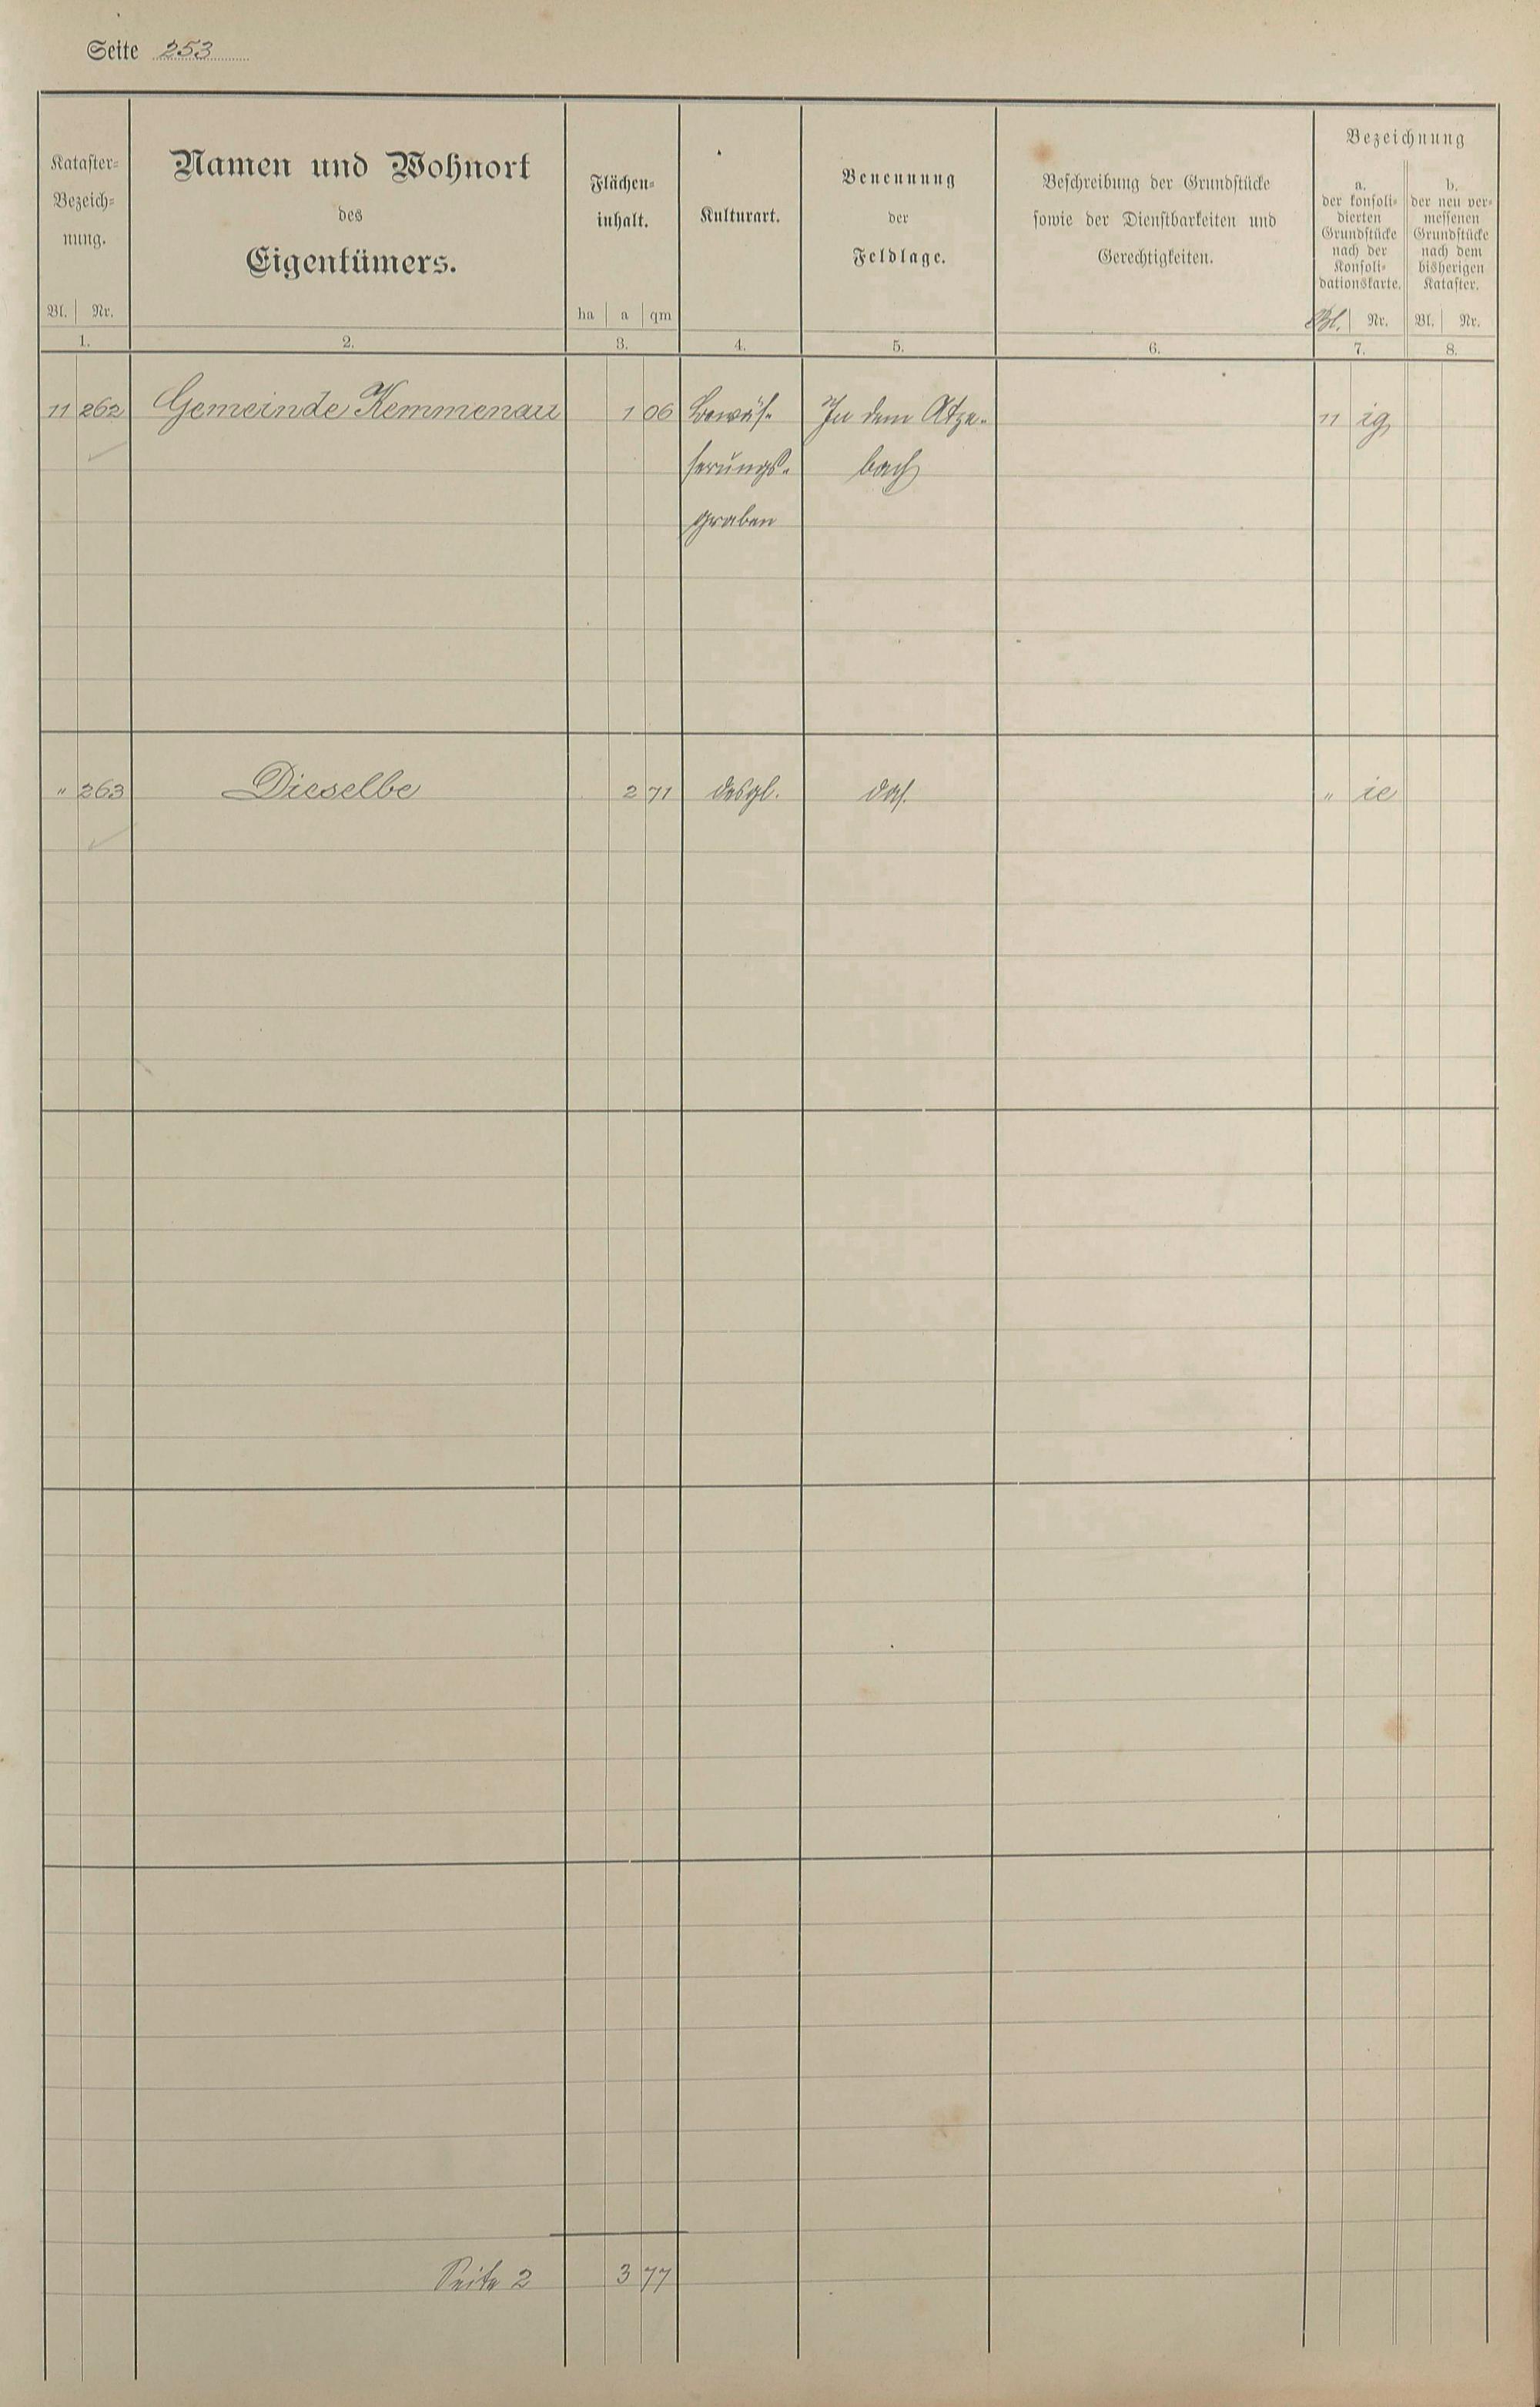 Seite 253
Kataster-
Bezeich-
nung.
Bl. Nr.
1.
Namen und Wohnort
des
Eigentümers.
2.
Flächen-
inhalt.
ha a qm
3.
Kulturart.
4.
Benennung
der
Feldlage.
5.
Beschreibung der Grundstücke
sowie der Dienstbarkeiten und
Gerechtigkeiten.
6.
Bezeichnung
a.
der konsoli-
dierten
Grundstücke
nach der
Konsoli-
dationskarte.
Bl. Nr.
7.
b.
der neu ver-
messenen
Grundstücke
nach dem
bisherigen
Kataster.
Bl. Nr.
8.
11 262 Gemeinde Kemmenau 1 06 Bewäs- In dem Atze- 11 ig
serungs- bach
graben
" 263 Dieselbe 2 71 desgl. das. " ie
Seite 2 3 77